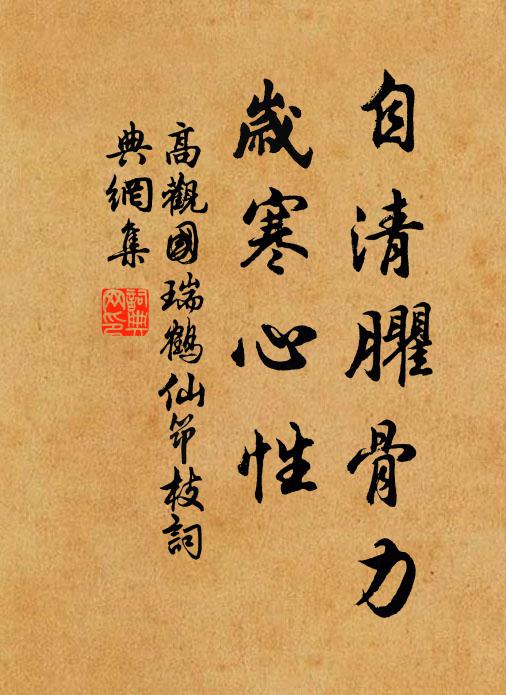 自清臞骨力
歲寒心性
高觀國瑞鶴仙筇枝詞
典網集
詞典
网印